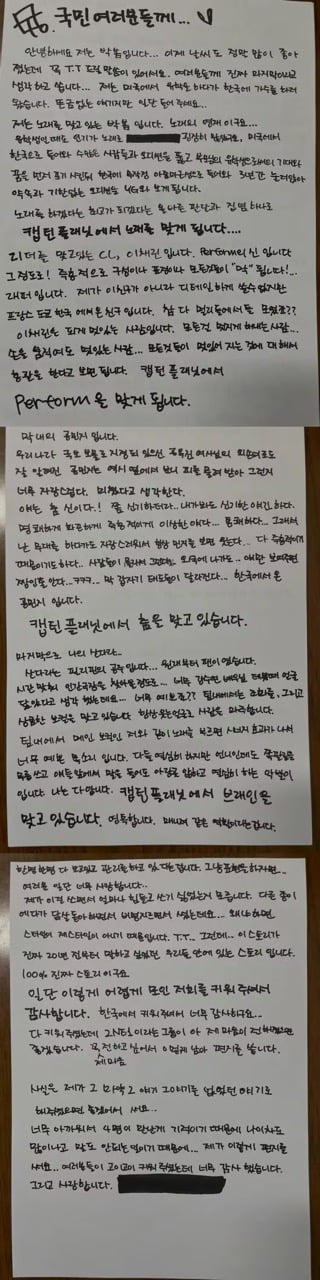 국민여러분들께...
안녕하세요 저는 박봄입니다... 이제 날씨도 정말 많이 좋아
졌는데 꼭 T.T 드릴 말씀이 있어서요. 여러분들께 진짜 마지막이라고
생각하고 씁니다... 저는 미국에서 유학을 하다가 한국에 가수를 하러
왔습니다. 뜬금없는 얘기지만 일단 들어주세요..
저는 노래를 맡고 있는 박봄 입니다. 노래의 영재 이구요..
유학생인때도 인기가 노래로 진정히 많았구요, 미국에서
한국으로 들어와 수많은 사람들과 오디션을 뚫고
꿈을 먼저 품기 시작되 한국에 무작정 아울마저으로 들어와 3년간
약속과 기한없는 오디션을 YG와 보게 됩니다.
노래를 하겠다는 최고가 되겠다는 올바른 판단과 집념 하나로
캡틴플래닛에서 노래를 맡게 됩니다....
리더를 맡고있는 CL, 이채린 입니다. Perform의 신 입니다
그정도로! 즉흥적으로 구성이나 표정이나 모든것들이 "딱" 됩니다!..
래퍼 입니다. 제가 이친구가 아니라 디테일하게 쓸수없지만
프랑스 도쿄 한국 에서온 친구 입니다. 참 다 멀리들에서 도 모였죠??
이채린은 되게 멋있는 사람입니다. 모든걸 멋지게 하애는 사람...
손을 움직여도 멋있는 사람... 모든것들이 멋있어 지는것에 대해서
총괄을 한다고 보면 됩니다. 캡틴 플래닛에서
Perform을 맡게 됩니다.
막내의 공민지 입니다.
우리나라 국보 보물로 지정되 있으신 공옥진 여사님의 외손녀로도
잘 알려진 공민지는 역시 옆에서 보니 피를 물려 받아 그런지
너무 자랑스럽다. 미쳤다고 생각한다.
얘는 춤 신이다! 좀 신기하더라.. 내가봐도 신기한 애긴 하다.
명쾌하게 화끈하게 즉흥적이게 이상한 애다... 통쾌하다... 그래서
난 무대를 하다가도 자랑스러워서 항상 민지를 보면 웃는다... 다 즉흥적이기
때문이기도 하다.. 사람들이 몰라서 그런데.. 외국에 나가도.. 얘만 보여주면
짱인줄 안다...ㅋㅋㅋ... 막 갑자기 태도들이 달라진다... 한국에서 온
공민지 입니다.
캡틴 플래닛에서 춤을 맡고 있습니다.
마지막으로 나의 산다라..
산다라는 필리핀의 공주 입니다... 원래부터 팬이 였습니다.
시간 맞춰 인간극장을 찾아볼정도로... 너무 강수연 배우님 데뷔때 얼굴
닮았다고 생각 했는데요... 너무 예쁘죠?? 팀내에서는 조화를, 그리고
상큼한 보컬을 맡고 있습니다 항상 웃는얼굴로 사람을 마주합니다.
팀내에서 메인 보컬인 저와 같이 노래를 부르면 시너지 효과가 나서
너무 예쁜 목소리 입니다. 다들 열심히 하지만 언니인데도 쭉 관절을
모를 쓰고 애들 앞에서 말을 들어도 아랑곳 않하고 열심히 하는 악벌이
입니다. 나는 다 압니다. 캡틴플래닛에서 브레인을
맡고 있습니다. 영특합니다. 매니저 같은 역할이라는겁니다.
한명 한명 다 보고있고 관리를 하고 있다는겁니다. 그냥 표현을 하자면...
여러분 일단 너무 사랑합니다..
제가 이걸 쓰면서 얼마나 힘들고 쓰기 싫었는지 모릅니다. 다른 종이
에다가 답답 놓아 하면서 버린지 모르면서 썼는데요... 왜냐 하면
스타일이 제스타일이 아니기 때문입니다. T.T... 그런데... 이스토리가
진짜 20년 전부터 말하고 싶었던 우리들 안에 있는 스토리 입니다.
100% 진짜 스토리 이구요.
일단 이렇게 어렵게 모인 저희를 키워주셔서
감사합니다. 한국에서 키워주셔서 너무 감사하구요...
다 키워주셨는데 2NE1 이라는 그룹이 아 제 마음이 전해졌으면
좋겠습니다. 꼭 전하고 싶어서 이렇게 남아 편지를 씁니다.
제마음
사실은 제가 그 마약 그 얘기 그이야기를 없었던 얘기로
해주셨으면 좋겠어서 써요...
너무 아까워서 4명이 만난게 기적이기 때문에 나이차도
많이나고 말도 안되는 일이기 때문에... 제가 이렇게 편지를
써요.. 여러분들이 고이고이 키워주셨는데 너무 감사 했습니다.
그리고 사랑합니다.